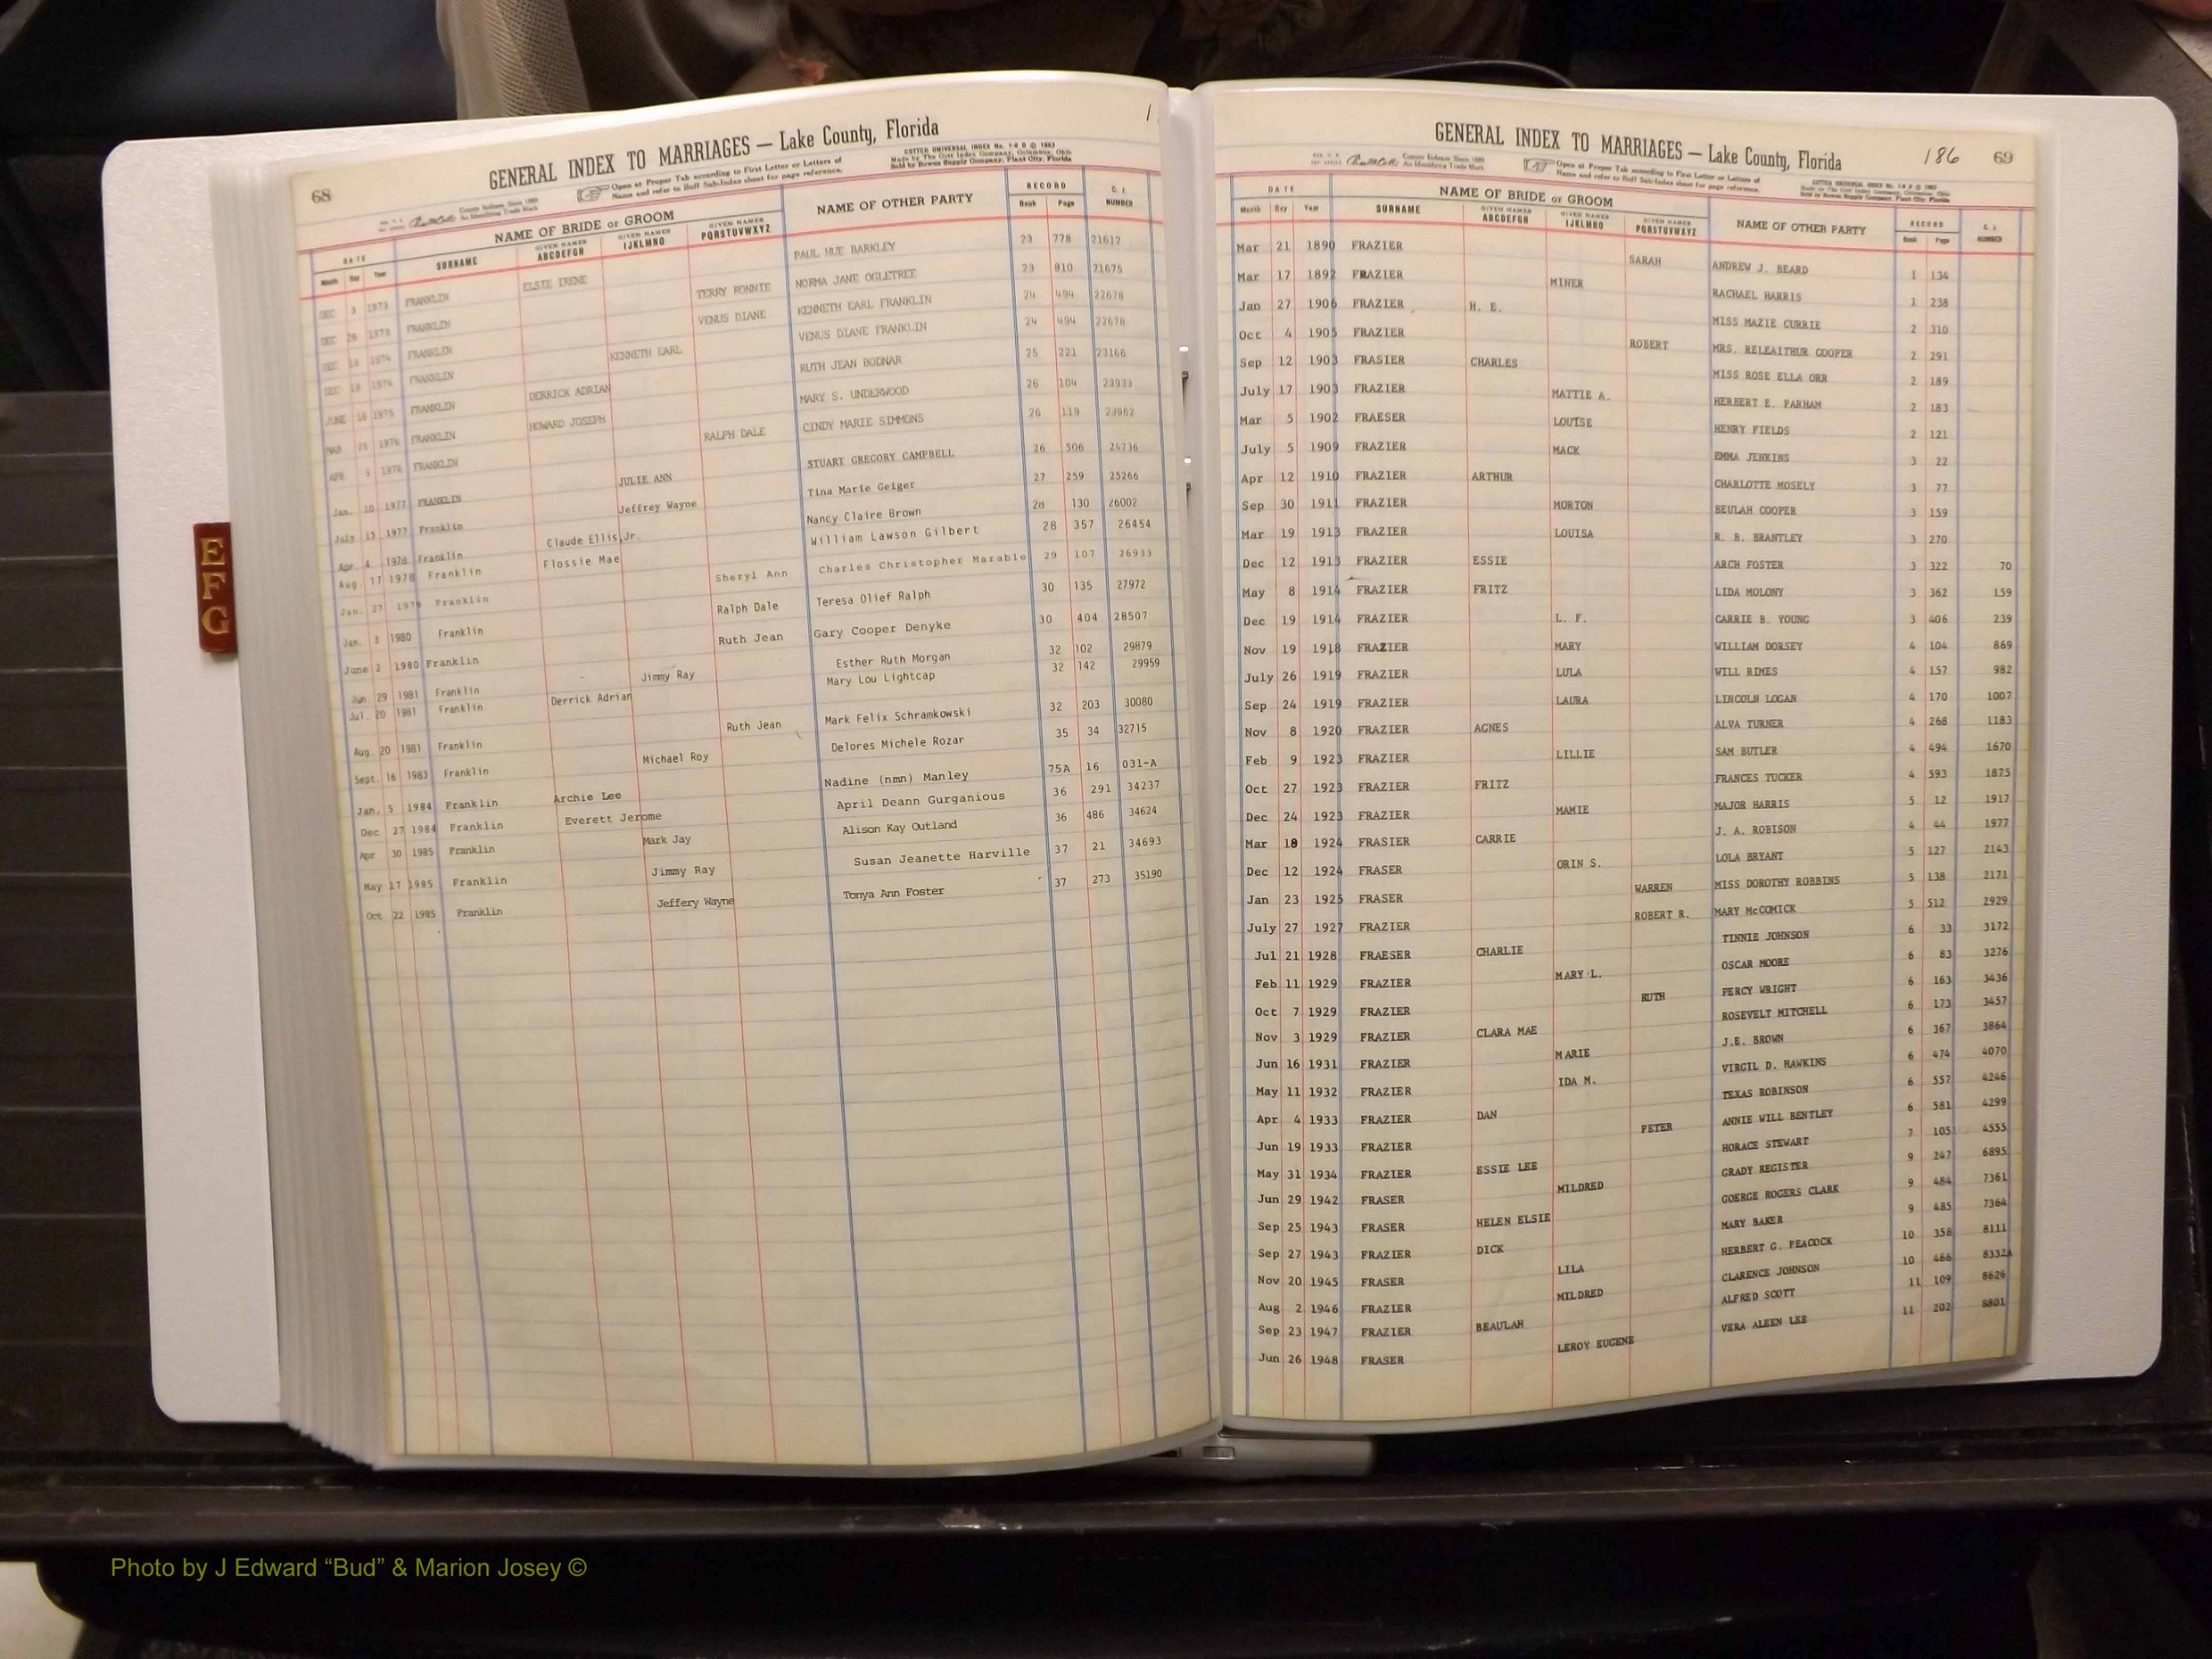 68
GENERAL INDEX TO MARRIAGES — Lake County, Florida
Open at Proper Tab according to First Letter or Letters of
Name and refer to Buff Sub-Index sheet for page reference.
COTTCO UNIVERSAL INDEX
Made by The Cott Index Company, Columbus, Ohio
Sold by Bowen Supply Company, Plant City, Florida
DATE NAME OF BRIDE or GROOM NAME OF OTHER PARTY RECORD NUMBER
Month Day Year SURNAME GIVEN NAMES ABCDEFGH GIVEN NAMES IJKLMNO GIVEN NAMES PQRSTUVWXYZ Book Page
DEC 3 1973 FRANKLIN ELSIE IRENE PAUL HUE BARKLEY 23 778 21612
DEC 26 1973 FRANKLIN TERRY RONNIE NORMA JANE OGLETREE 23 810 21675
DEC 19 1974 FRANKLIN VENUS DIANE KENNETH EARL FRANKLIN 24 494 22678
DEC 18 1974 FRANKLIN KENNETH EARL VENUS DIANE FRANKLIN 24 494 22678
JUNE 16 1975 FRANKLIN DERRICK ADRIAN RUTH JEAN BODNAR 25 221 23166
MAR 25 1976 FRANKLIN HOWARD JOSEPH MARY S. UNDERWOOD 26 104 23933
APR 5 1976 FRANKLIN RALPH DALE CINDY MARIE SIMMONS 26 119 23962
Jan. 10 1977 FRANKLIN JULIE ANN STUART GREGORY CAMPBELL 26 506 24736
July 15 1977 Franklin Jeffrey Wayne Tina Marie Geiger 27 259 25266
Apr. 4 1978 Franklin Claude Ellis,Jr. Nancy Claire Brown 28 130 26002
Aug. 17 1978 Franklin Flossie Mae William Lawson Gilbert 28 357 26454
Jan. 27 1979 Franklin Sheryl Ann Charles Christopher Marable 29 107 26933
Jan. 3 1980 Franklin Ralph Dale Teresa Olief Ralph 30 135 27972
June 2 1980 Franklin Ruth Jean Gary Cooper Denyke 30 404 28507
Jun. 29 1981 Franklin Jimmy Ray Esther Ruth Morgan 32 102 29879
Jul. 20 1981 Franklin Derrick Adrian Mary Lou Lightcap 32 142 29959
Aug. 20 1981 Franklin Ruth Jean Mark Felix Schramkowski 32 203 30080
Sept. 16 1983 Franklin Michael Roy Delores Michele Rozar 35 34 32715
Jan. 5 1984 Franklin Archie Lee Nadine (nmn) Manley 75A 16 031-A
Dec 27 1984 Franklin Everett Jerome April Deann Gurganious 36 291 34237
Apr 30 1985 Franklin Mark Jay Alison Kay Outland 36 486 34624
May 17 1985 Franklin Jimmy Ray Susan Jeanette Harville 37 21 34693
Oct 22 1985 Franklin Jeffery Wayne Tonya Ann Foster 37 273 35190
E
F
G
GENERAL INDEX TO MARRIAGES — Lake County, Florida
186 69
Open at Proper Tab according to First Letter or Letters of
Name and refer to Buff Sub-Index sheet for page reference.
DATE NAME OF BRIDE or GROOM NAME OF OTHER PARTY RECORD NUMBER
Month Day Year SURNAME GIVEN NAMES ABCDEFGH GIVEN NAMES IJKLMNO GIVEN NAMES PQRSTUVWXYZ Book Page
Mar 21 1890 FRAZIER SARAH ANDREW J. BEARD 1 134
Mar 17 1892 FRAZIER MINER RACHAEL HARRIS 1 238
Jan 27 1906 FRAZIER H. E. MISS MAZIE CURRIE 2 310
Oct 4 1905 FRAZIER ROBERT MRS. RELEAITHUR COOPER 2 291
Sep 12 1903 FRASIER CHARLES MISS ROSE ELLA ORR 2 189
July 17 1903 FRAZIER MATTIE A. HERBERT E. PARHAM 2 183
Mar 5 1902 FRAESER LOUISE HENRY FIELDS 2 121
July 5 1909 FRAZIER MACK EMMA JENKINS 3 22
Apr 12 1910 FRAZIER ARTHUR CHARLOTTE MOSELY 3 77
Sep 30 1911 FRAZIER MORTON BEULAH COOPER 3 159
Mar 19 1913 FRAZIER LOUISA R. B. BRANTLEY 3 270
Dec 12 1913 FRAZIER ESSIE ARCH FOSTER 3 322 70
May 8 1914 FRAZIER FRITZ LIDA MOLONY 3 362 159
Dec 19 1914 FRAZIER L. F. CARRIE B. YOUNG 3 406 239
Nov 19 1918 FRAZIER MARY WILLIAM DORSEY 4 104 869
July 26 1919 FRAZIER LULA WILL RIMES 4 157 982
Sep 24 1919 FRAZIER LAURA LINCOLN LOGAN 4 170 1007
Nov 8 1920 FRAZIER AGNES ALVA TURNER 4 268 1183
Feb 9 1923 FRAZIER LILLIE SAM BUTLER 4 494 1670
Oct 27 1923 FRAZIER FRITZ FRANCES TUCKER 4 593 1875
Dec 24 1923 FRAZIER MAMIE MAJOR HARRIS 5 12 1917
Mar 18 1924 FRASIER CARRIE J. A. ROBISON 4 44 1977
Dec 12 1924 FRASER ORIN S. LOLA BRYANT 5 127 2143
Jan 23 1925 FRASER WARREN MISS DOROTHY ROBBINS 5 138 2171
July 27 1927 FRAZIER ROBERT R. MARY McCOMICK 5 512 2929
Jul 21 1928 FRAESER CHARLIE TINNIE JOHNSON 6 33 3172
Feb 11 1929 FRAZIER MARY L. OSCAR MOORE 6 83 3276
Oct 7 1929 FRAZIER RUTH PERCY WRIGHT 6 163 3436
Nov 3 1929 FRAZIER CLARA MAE ROSEVELT MITCHELL 6 173 3457
Jun 16 1931 FRAZIER MARIE J.E. BROWN 6 367 3864
May 11 1932 FRAZIER IDA M. VIRGIL D. HAWKINS 6 474 4070
Apr 4 1933 FRAZIER DAN TEXAS ROBINSON 6 557 4246
Jun 19 1933 FRAZIER PETER ANNIE WILL BENTLEY 6 581 4299
May 31 1934 FRAZIER ESSIE LEE HORACE STEWART 7 105 4555
Jun 29 1942 FRASER MILDRED GRADY REGISTER 9 247 6895
Sep 25 1943 FRASER HELEN ELSIE GOERGE ROGERS CLARK 9 484 7361
Sep 27 1943 FRAZIER DICK MARY BAKER 9 485 7364
Nov 20 1945 FRASER LILA HERBERT G. PEACOCK 10 358 8111
Aug 2 1946 FRAZIER MILDRED CLARENCE JOHNSON 10 466 8332A
Sep 23 1947 FRAZIER BEAULAH ALFRED SCOTT 11 109 8626
Jun 26 1948 FRASER LEROY EUGENE VERA ALEEN LEE 11 202 8801
Photo by J Edward “Bud” & Marion Josey ©